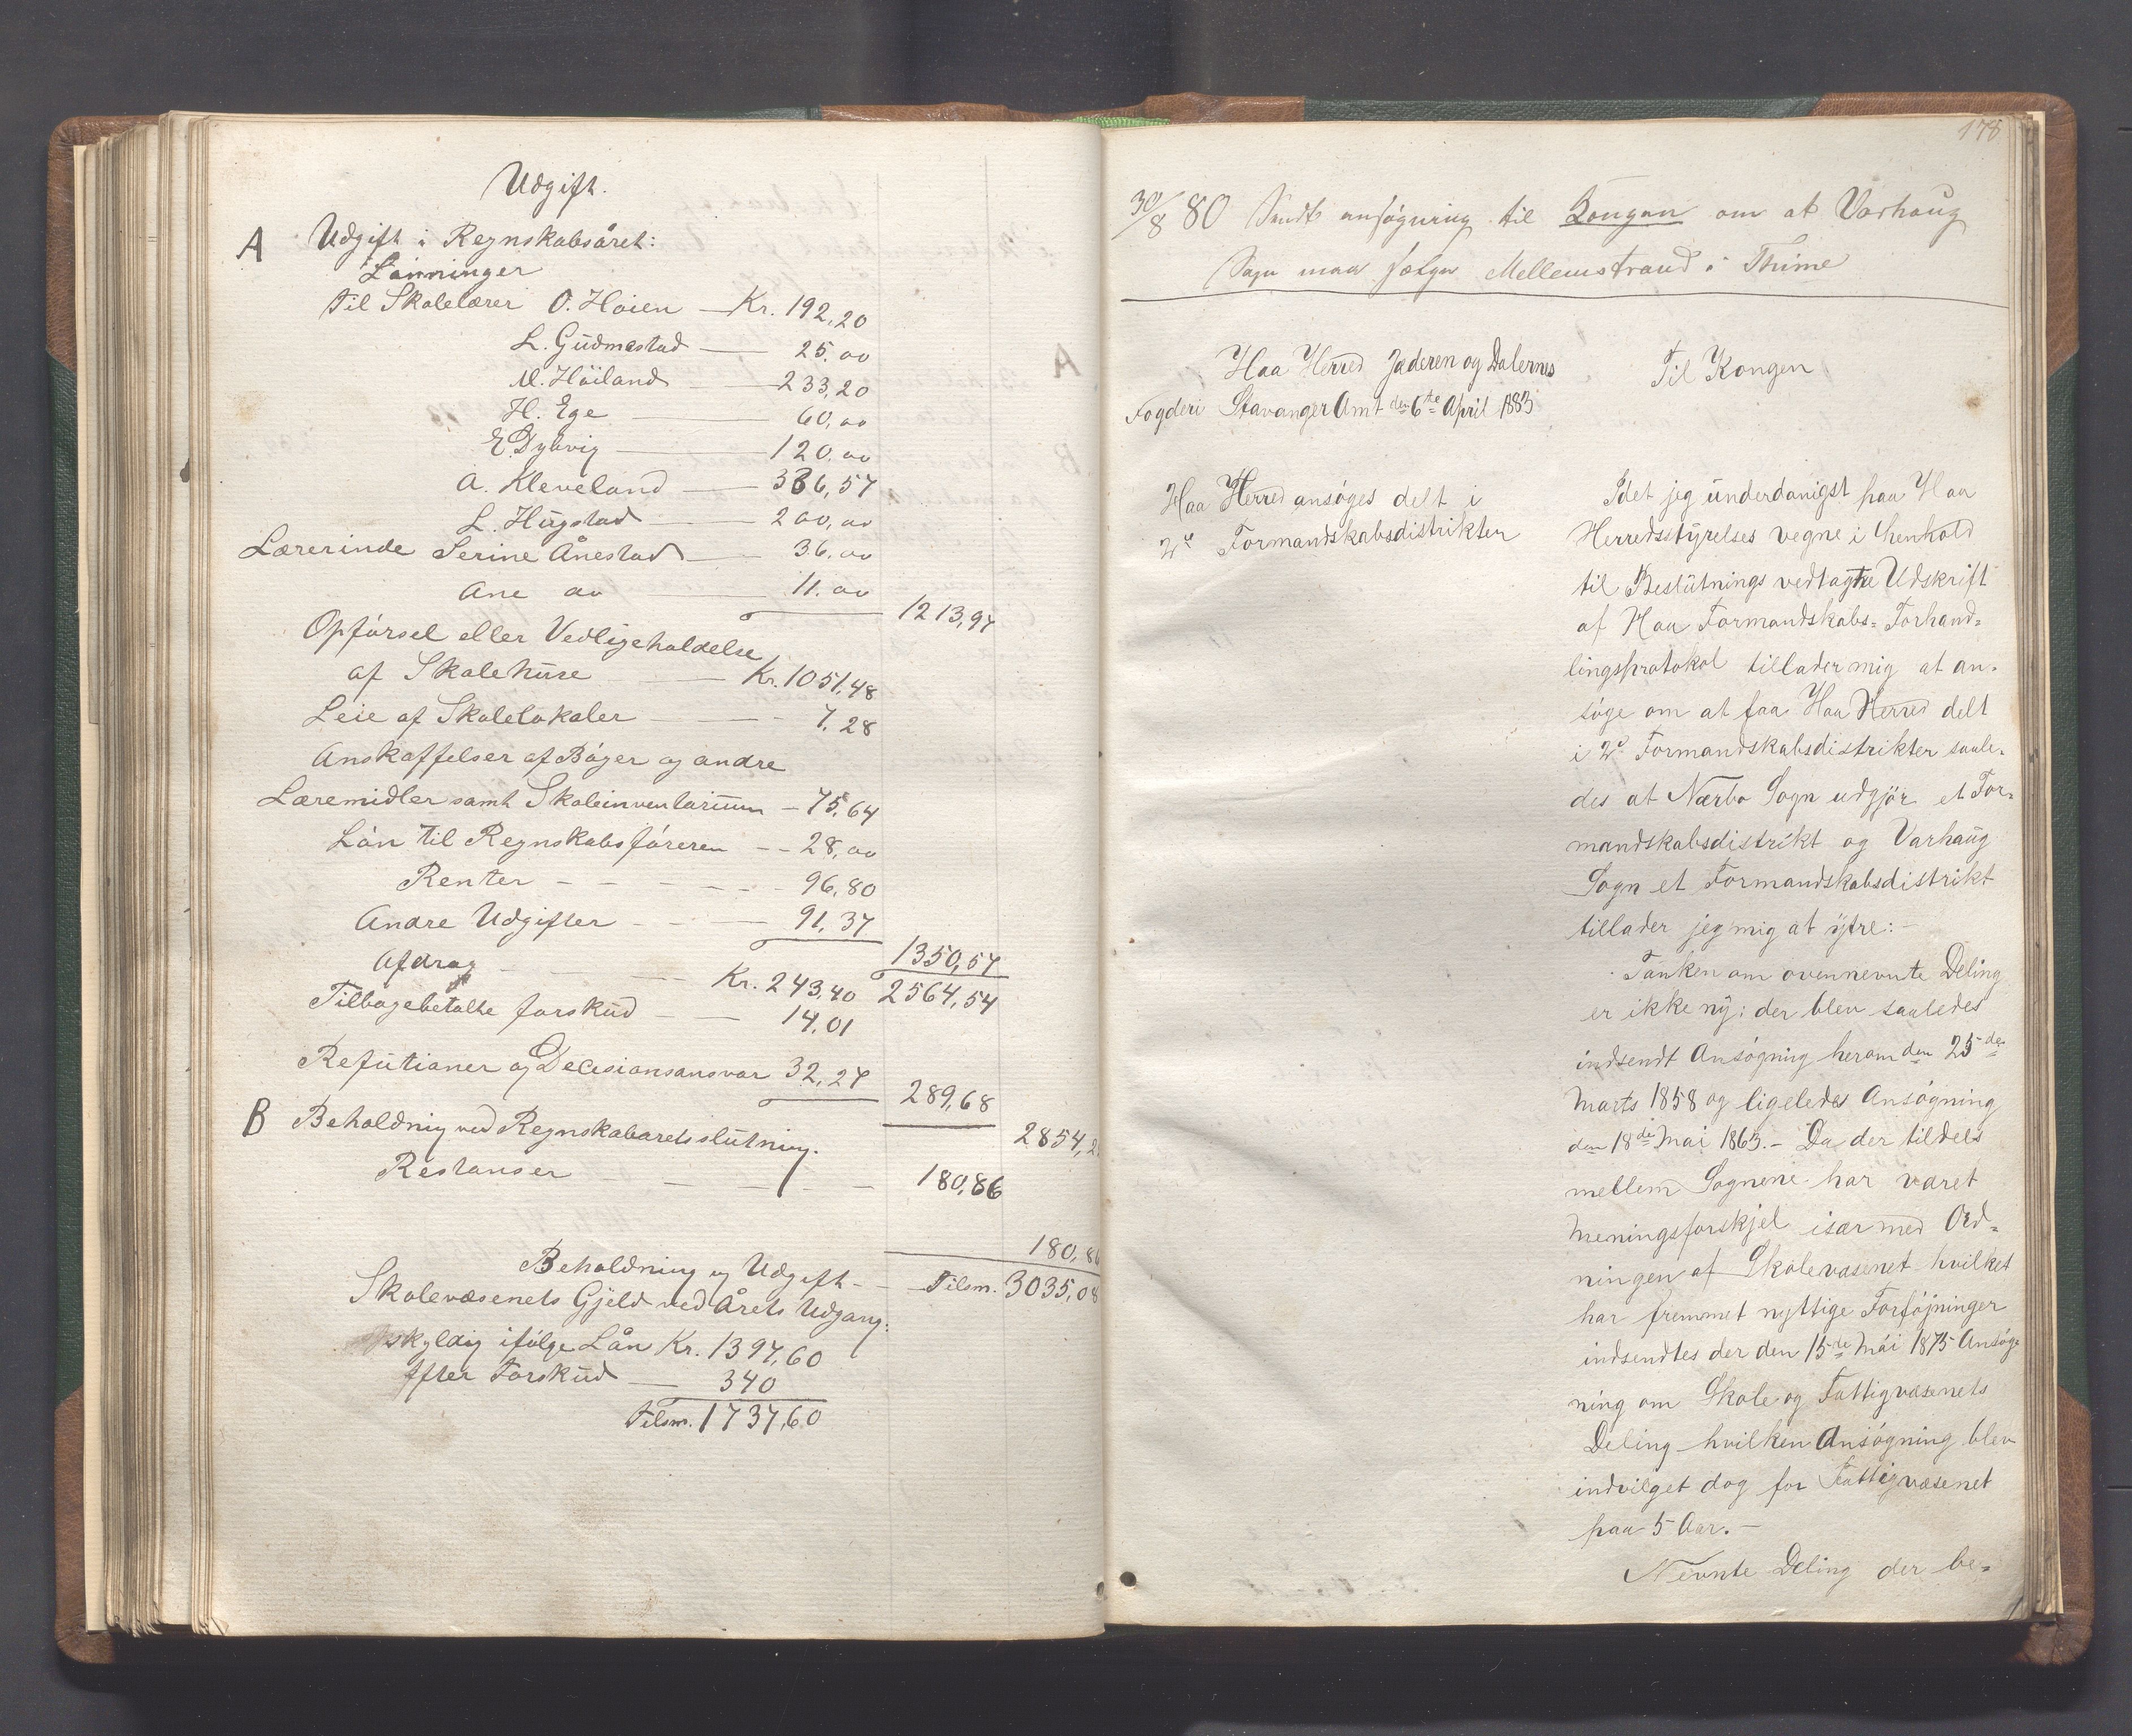 Udgift.
A Udgift i Regnskabsåret:
Lønninger
til Skolelærer O. Høien — Kr. 192,20
L. Gudmestad — 25.00
M. Høiland — 233,20
H. Ege — 60,00
E. Dybvig — 120.00
A. Kleveland — 336,57
L. Hugstad — 200,00
Lærerinde Serine Ånestad — 36.00
Ane do — 11.00
1213,97
Opførsel eller Vedligeholdelse
af Skolehuse — Kr. 1051,48
Leie af Skolelokaler — 7.28
Anskaffelser af Bøger og andre
Læremidler samt Skoleinventarium — 75,64
Løn til Regnskabsføreren — 28,00
Renter — 96,80
Andre Udgifter — 91,37
1350,57
Afdrag — Kr. 243,40 2564,54
Tilbagebetalte forskud — 14,01
Refutioner og Decisionsansvar 32,27
289,68
2854,2
B Beholdning ved Regnskabsårets slutning.
Restanser — 180,86
180,86
Beholdning og Udgift — Tilsm. 3035,08
Skolevæsenets Gjeld ved Årets Udgang:
skyldig ifølge Lån Kr. 1397,60
Efter Forskud — 340
Tilsm. 1737,60
178
30/8 80 Sendt ansøgning til Kongen om at Varhoug
Sogn maa følge Mellemstrand i Thime
Haa Herred Jæderen og Dalernes
Fogderi Stavanger Amt den 6te April 1883
Til Kongen
Haa Herred ansøges delt i
2de Formandskabsdistrikter
Idet jeg underdanigst paa Haa
Herredsstyrelses vegne i henhold
til Beslutnings vedtagte Udskrift
af Haa Formandskabs-Forhand-
lingsprotokol tillader mig at an-
søge om at faa Haa Herred delt
i 2de Formandskabsdistrikter saale-
des at Nærbø Sogn udgjør et For-
mandskabsdistrikt og Varhaug
Sogn et Formandskabsdistrikt
tillader jeg mig at ytre:-
Tanken om ovennevnte Deling
er ikke ny: der blev saaledes
indsendt Ansøgning herom den 25de
Marts 1858 og ligeledes Ansøgning
den 18de Mai 1863.- Da der tildels
mellem Sognene har været
Meningsforskjel især med Ord-
ningen af Skolevæsenet hvilket
har fremmet nyttige Forføjninger
indsendtes der den 15de Mai 1875 Ansøg-
ning om Skole og Fattigvæsenets
Deling hvilken Ansøgning blev
indvilget dog for Fattigvæsenet
paa 5 Aar.-
Nevnte Deling der be-